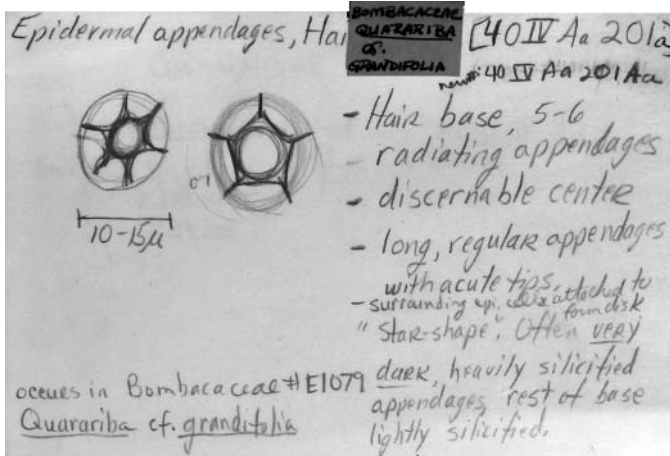 Epidermal appendages, Hai
BOMBACACEAE
QUARARIBA
cf.
GRANDIFOLIA
[40 IV Aa 201a]
40 IV Aa 201Aa
- Hair base, 5-6
- radiating appendages
- discernable center
- long, regular appendages
with acute tips.
- surrounding epi. cells attached to
form disk
"Star-shape". Often very
dark, heavily silicified
appendages, rest of base
lightly silicified.
10-15µ
occurs in Bombacaceae #E1079
Quarariba cf. grandifolia